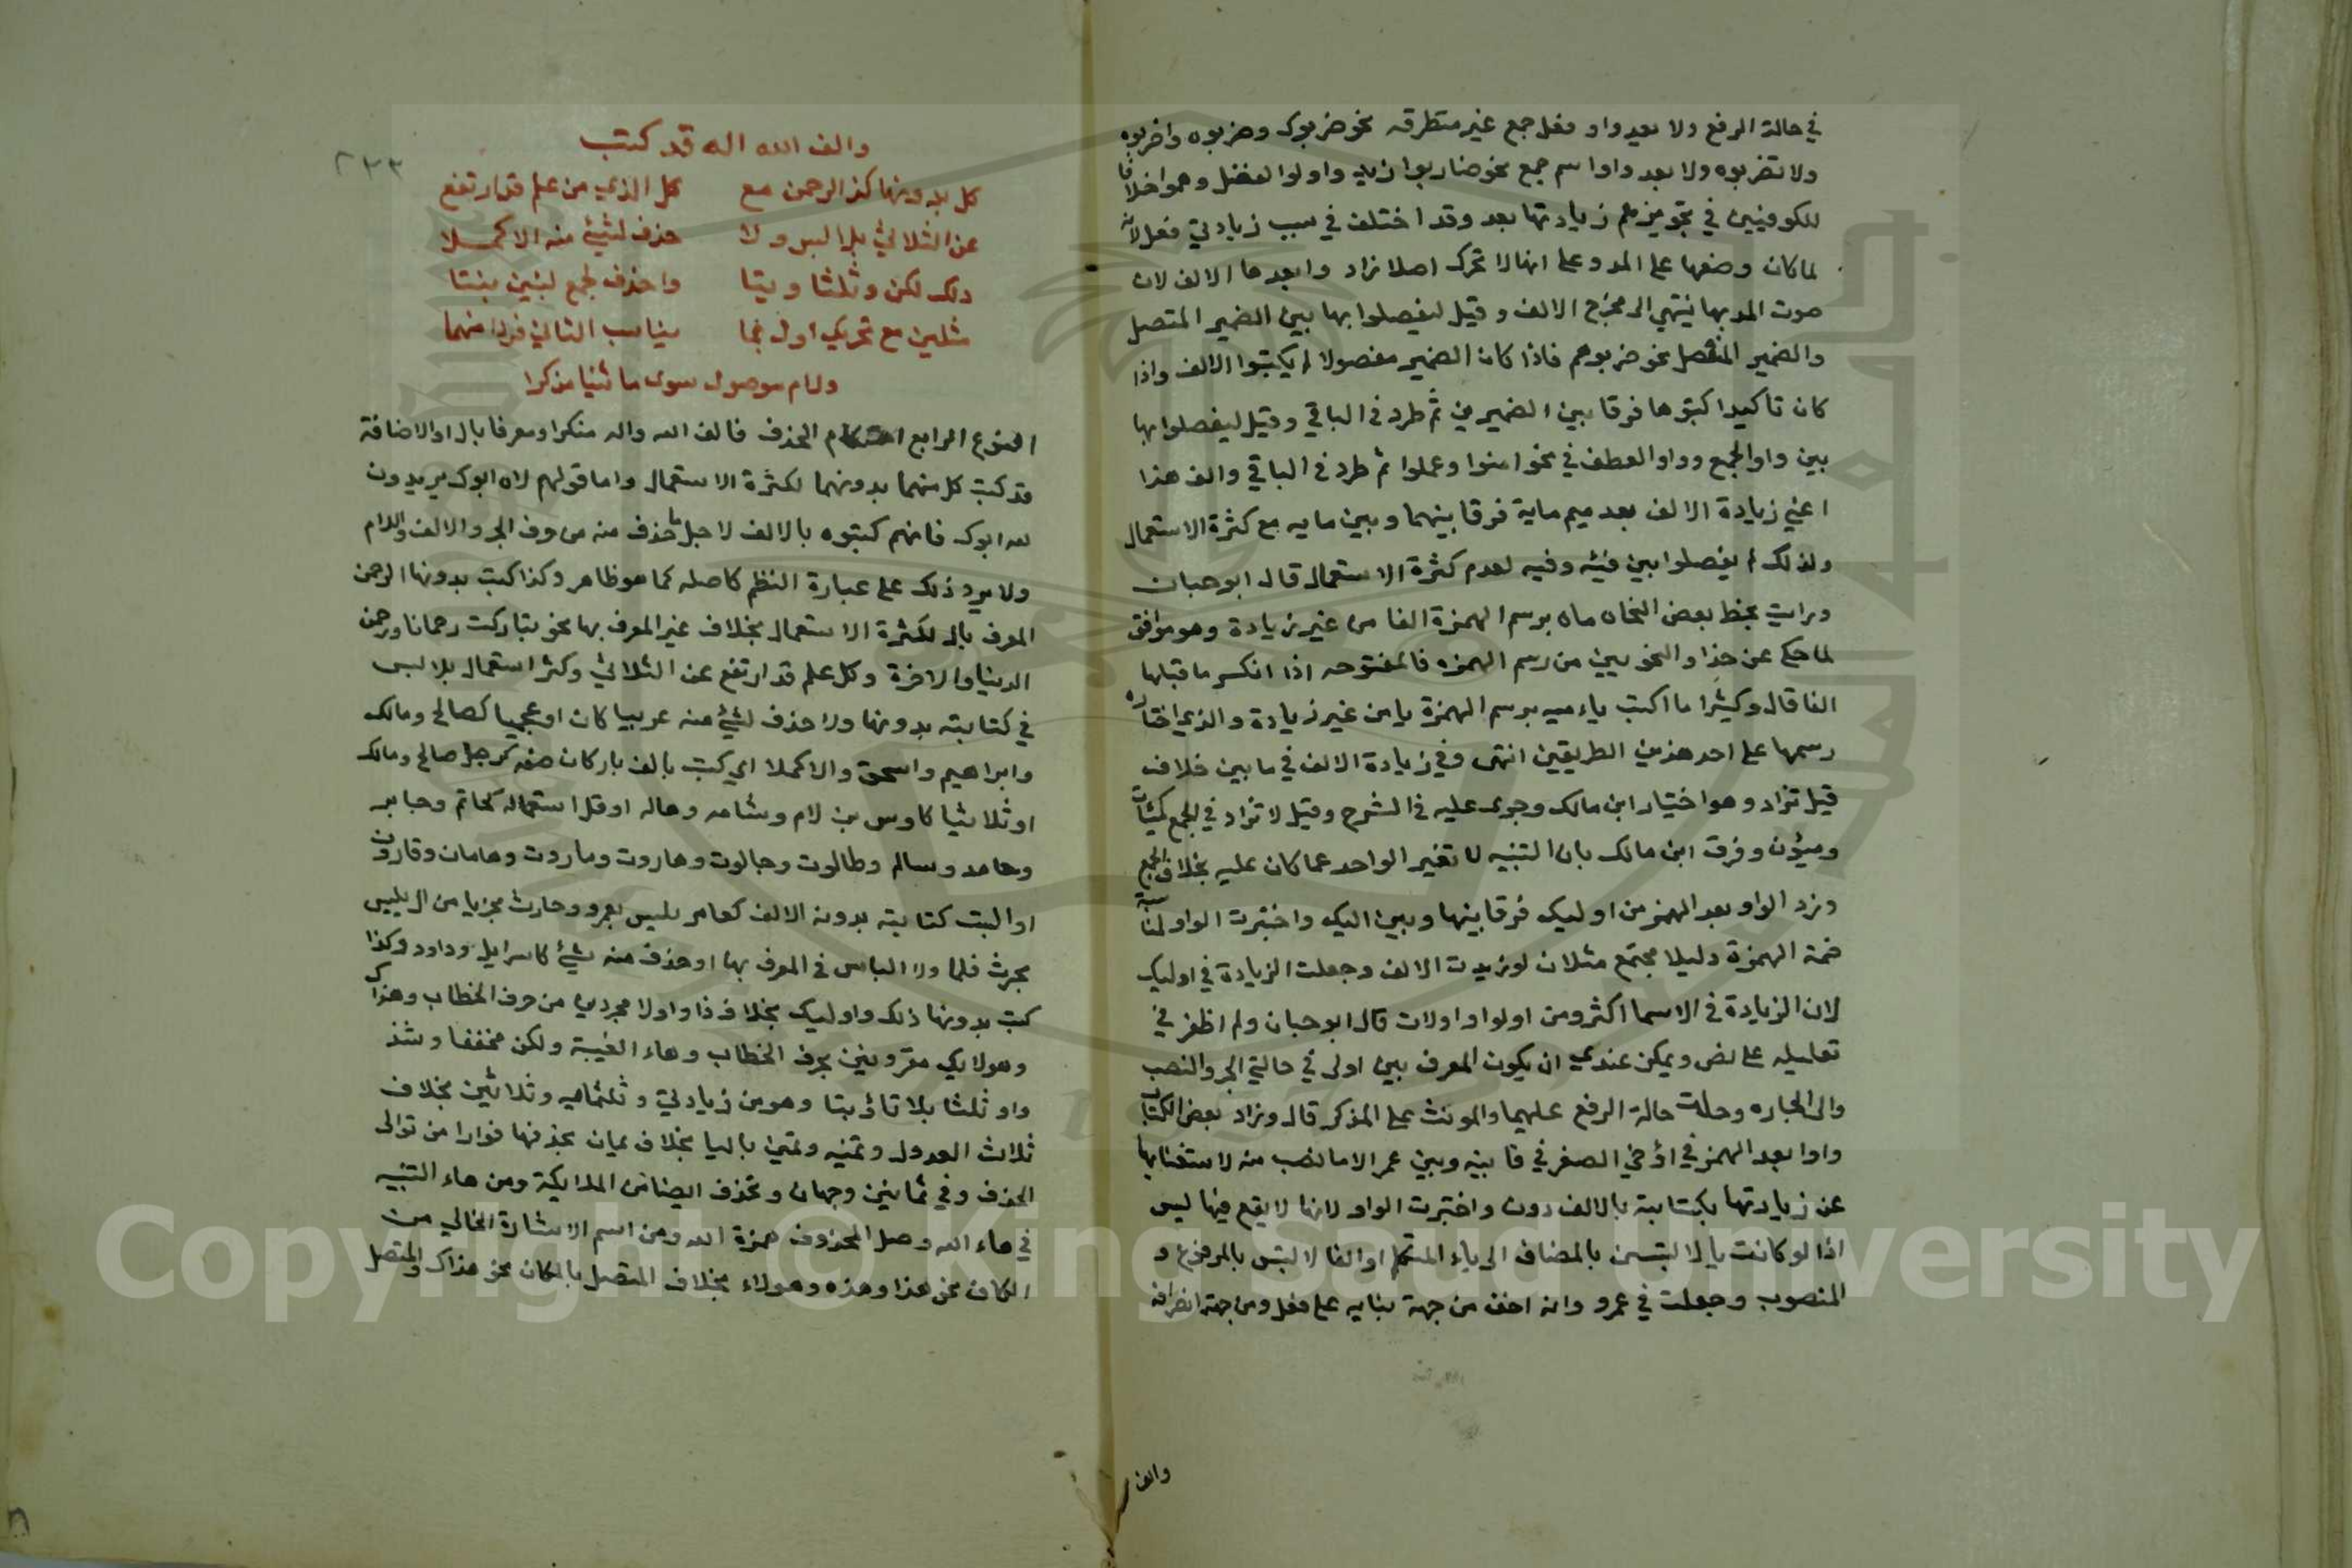 في حالة الرفع ولا بعد واو فعل جمع غير متطرقه نحو ضربوك وضربوه واضربوه
ولا تضربوه ولا بعد واو اسم جمع نحو ضاربوا زيد واولوا الفضل وهموا خلافا
للكوفيين في تجويزهم زيادتها بعد وقد اختلف في سبب زيادتي فعل لانه
لما كان وضعها على المد وعلى انها لا تحرك اصلا زاد وابعدها الالف لان
صوت المد بها ينتهي الى مخرج الالف و قيل ليفصلوا بها بين الضمير المتصل
والضمير المنفصل نحو ضربوهم فاذا كان الضمير مفصولا لم يكتبوا الالف واذا
كان تاكيدا كتبوها فرقا بين الضميرين ثم طرد في الباقي وقيل ليفصلوا بها
بين واو الجمع وواو العطف في نحو امنوا وعملوا ثم طرد في الباقي والف هذا
اعني زيادة الالف بعد ميم ماية فرقا بينهما وبين مايه مع كثرة الاستعمال
ولذلك لم يفصلوا بين فئيه وفيه لعدم كثرة الاستعمال قال ابوحبان
ورايت بخط بعض النحاه ماه برسم الهمزة الفا من غير زيادة وهو موافق
لما حكى عن حذاو النحويين من رسم الهمزه فالمفتوحه اذا انكسر ما قبلها
الفا قال وكثيرا ما اكتب ياء ميه برسم الهمزة يا من غير زيادة والذي اختاره
رسمها على احد هذين الطريقين انتهى وفي زيادة الالف في ما بين خلاف
قيل تزاد وهو اختيار ابن مالك وجرى عليه في الشرح وقيل لا تزاد في الجمع كمئات
وميؤن وفرق ابن مالك بان التنبيه لا تغير الواحد عما كان عليه بخلاف الجمع
وزد الواو بعد الهمز من اوليك فرقا بينها وبين اليك واختبرت الواو لمناسبة
ضمة الهمزة دليلا مجتمع مثلان لوزيدت الالف وجعلت الزيادة في اوليك
لان الزيادة في الاسما اكثر ومن اولوا و اولات قال ابوحبان ولم اظفر في
تعليله على نص ويمكن عندي ان يكون المعرف بين اولى في حالتي الجر والنصب
والى الجاره وحملت حالة الرفع عليهما والمونث على المذكر قال وزاد بعض الكتاب
واوا بعد الهمز في اؤخي الصغر في قا بينه وبين عمر الاما نصب منه لاستغنايها
عن زيادتها بكتابته بالالف دون واختبرت الواو لانها لا يقع فيها ليس
اذا لو كانت يا لالتبس بالمضاف الى ياء المتكلم او الفا لالتبس بالمرفوع و
المنصوب وجعلت في عمرو وانه اخف من جهة بنايه على فعل ومن جهة انصرافه
والف
٢٣٣
والف الله اله قد كتب
كل بدونها كذا الرحمن مع كل الذي من علم قد ارتفع
عن الثلاثي بلا لبس ولا حذف لشيئ منه الا كملا
ذلك لكن وثلثا ويتا واحذف لجمع لبنين بنتا
مثلين مع تحريك اول نجا يناسب الثاني فردا منهما
ولام موصول سوى ما ثنيا مذكرا
النوع الرابع احكام الحذف فالف الله واله منكرا ومعرفا بال او الاضافة
قد كتب كل منهما بدونهما لكثرة الاستعمال واما قولهم لاه ابوك يريدون
لله ابوك فانهم كتبوه بالالف لاجل ما حذف منه من حرف الجر والالف واللام
ولا يرد ذلك على عبارة النظم كاصله كما هو ظاهر وكذا كتب بدونها الرحمن
المعرف بال لكثرة الاستعمال بخلاف غير المعرف بها نحو تباركت رحمانا ورحمن
الدنيا والاخرة وكل علم قد ارتفع عن الثلاثي وكثر استعمال بلا لبس
في كتابته بدونها ولا حذف لشيئ منه عربيا كان او عجميا كصالح ومالك
وابراهيم واسحق والا كملا اي كتب بالف بان كان صفه كرجل صالح ومالك
او ثلاثيا كاوس بن لام وشامه وهاله او قل استعماله كحاتم وجابر
وحامد وسالم وطالوت وجالوت وهاروت وماروت وهامان وقارون
او البت كتابته بدون الالف كعامر يلبس بعمرو وحارث مجزيا من ال يلبس
بحرث فلما ولا الباس في المعرف بها او حذف منه شيئ كاسرايل وداود وكذا
كتب بدونها ذلك واوليك بخلاف ذا واولا مجردين من حرف الخطاب وهذاك
وهولايك مقرونين بحرف الخطاب وهاء الغيبة ولكن مخففا وشذ
واو ثلثا بلا تا ؤبتا وهو من زيادتي وثلثمايه وثلاثين بخلاف
ثلاث العدول وثمنيه وثمني باليا بخلاف ثمان بحذفها فرارا من توالى
الحذف وفي ثمانين وجهان وتحذف ايضا من الملايكة ومن هاء التنبيه
في هاء الله وصل المحذوف همزة الله ومن اسم الاشارة الخالي من
الكاف نحو هذا وهذه وهولاء بخلاف المتصل بالكاف نحو هذاك والمتصل
Copyright © King Saud University